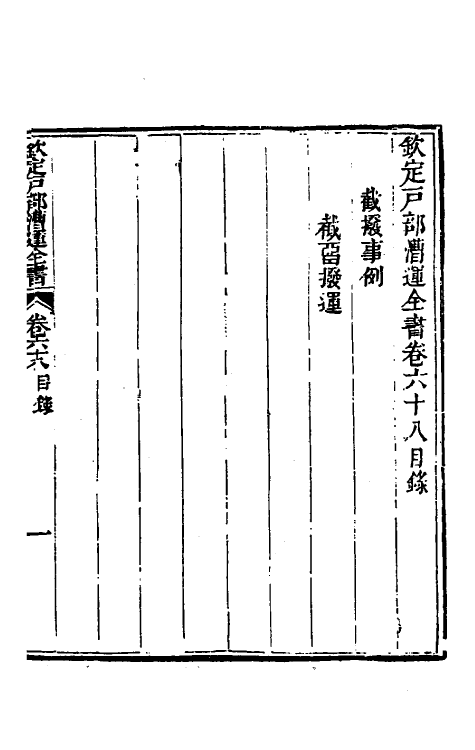 欽定戸部漕運全書卷六十八目錄
截撥事例
截畱撥運
欽定戸部漕運全書
卷六十八
目錄
一